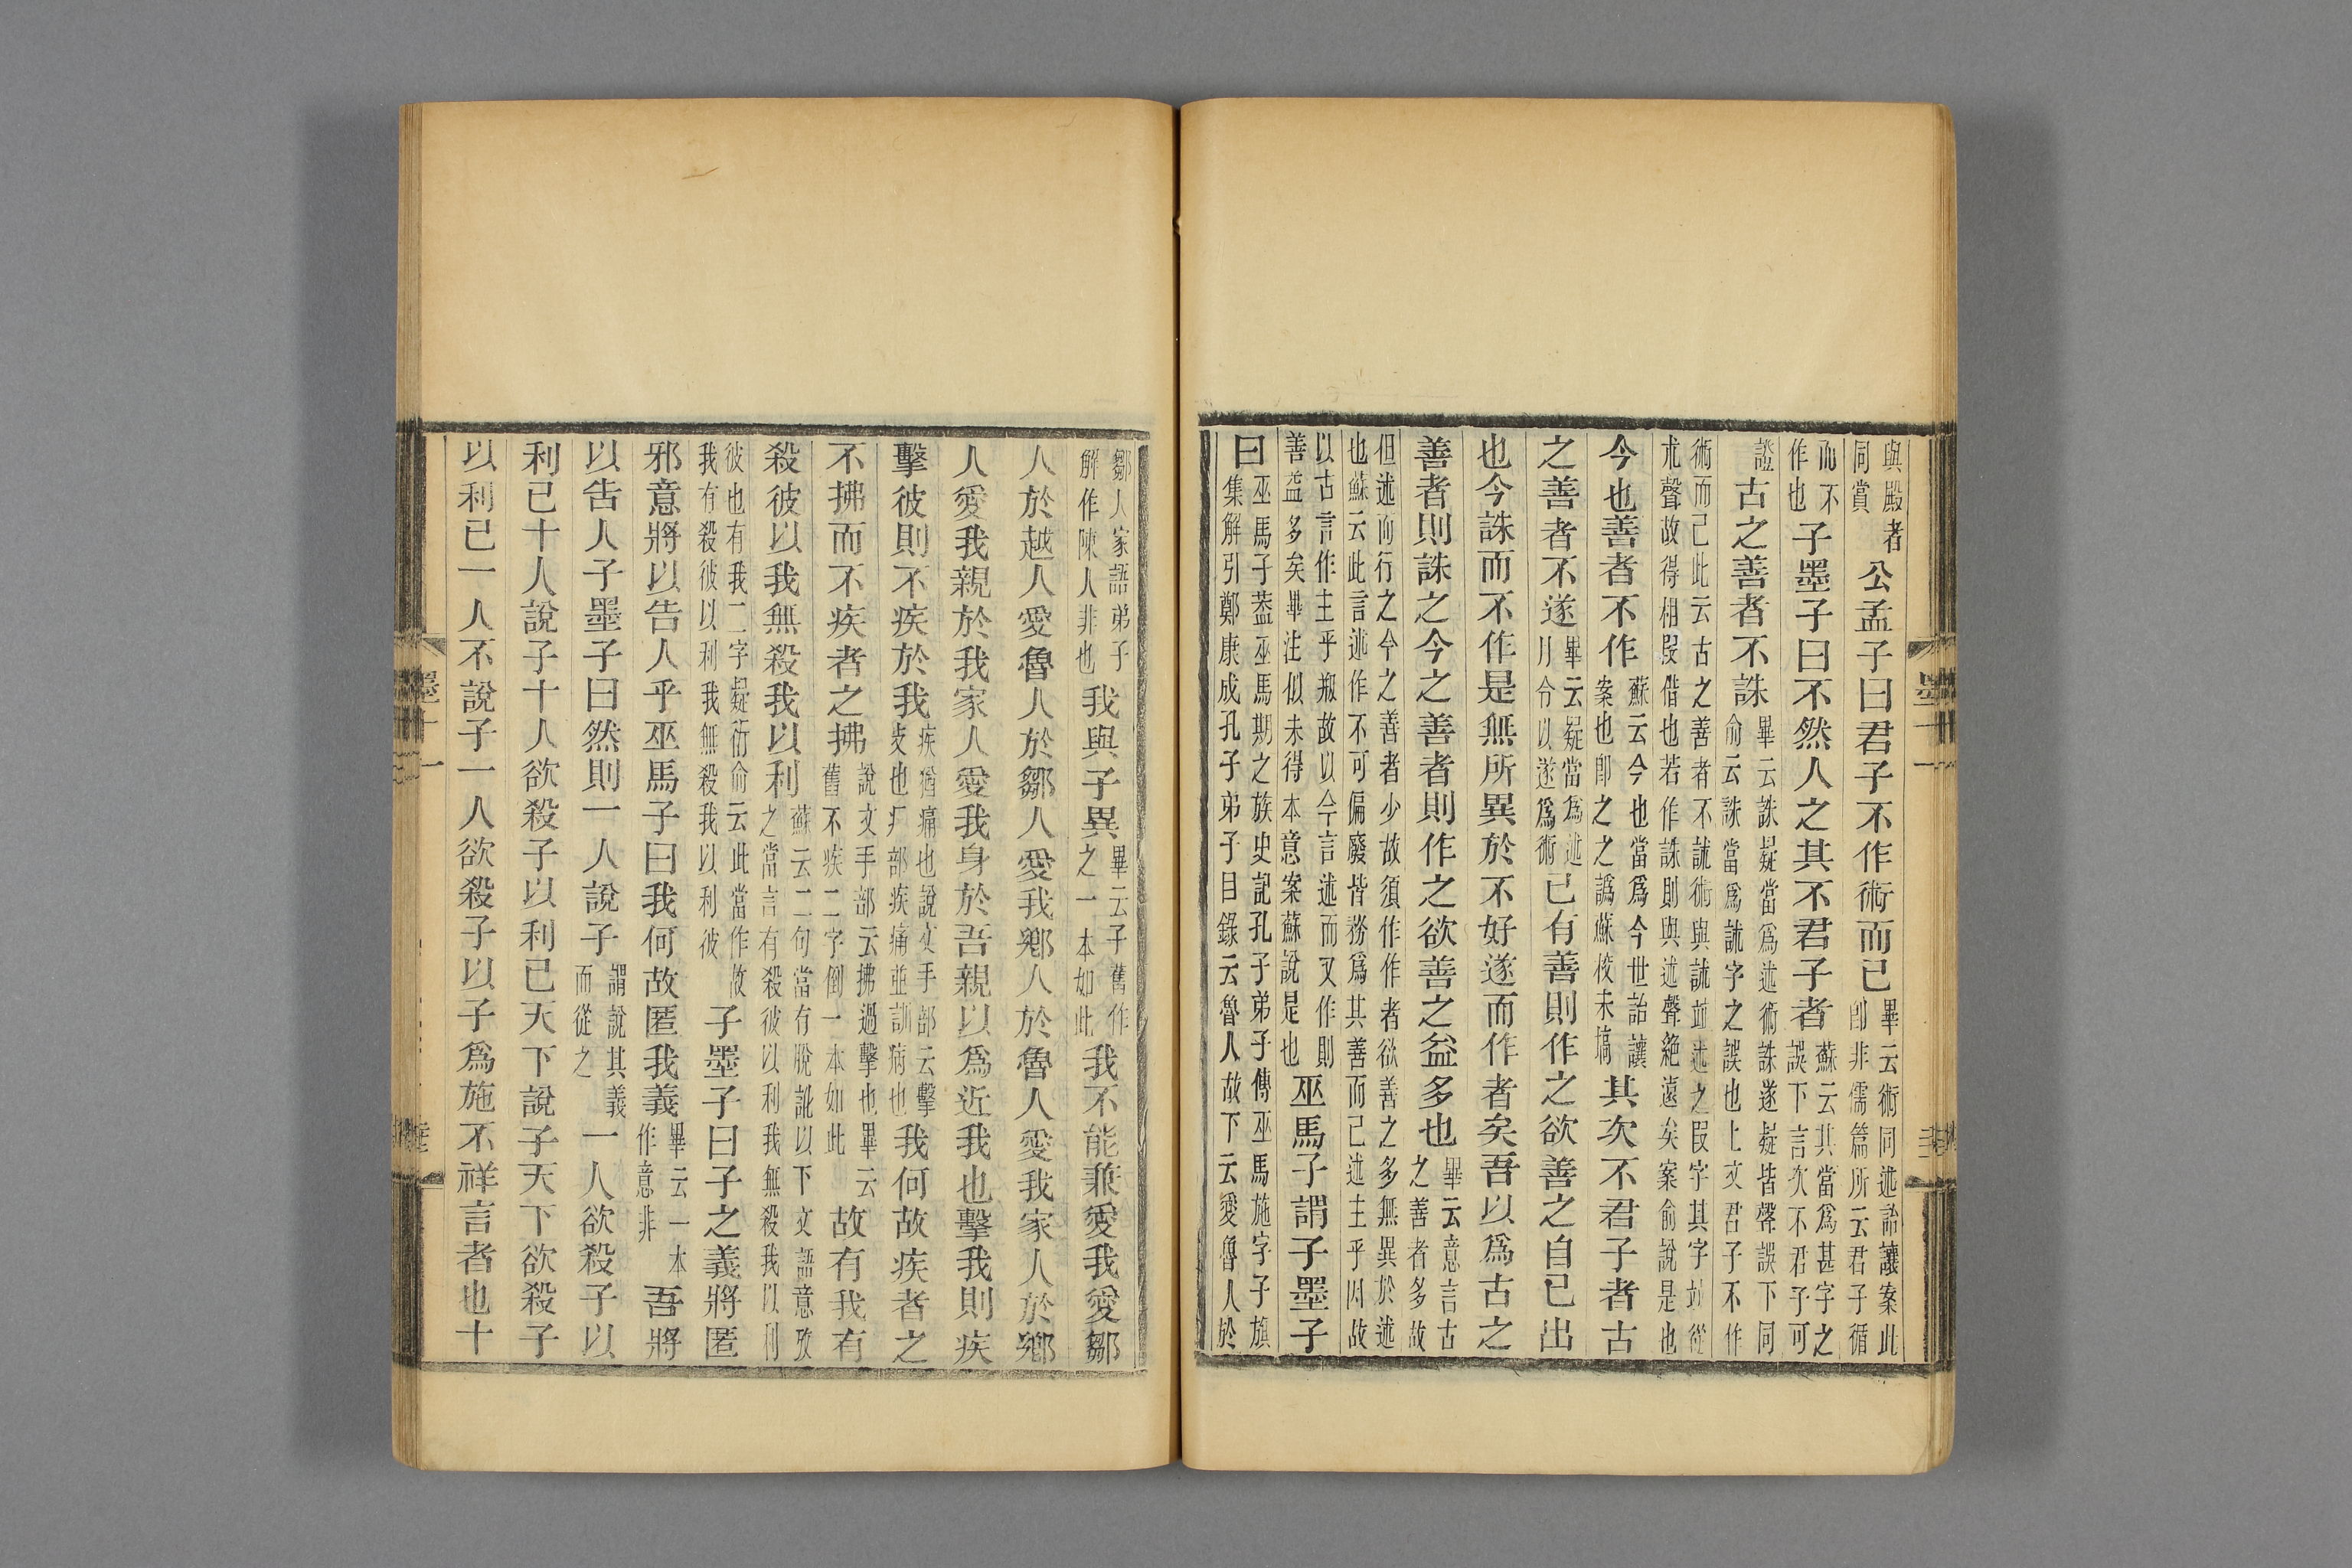 與殿者同賞公孟子曰君子不作術而已畢云術同述詒讓案此卽非儒篇所云君子循
而不作也子墨子曰不然人之其不君子者蘇云其當爲甚字之誤下言次不君子可
證古之善者不誅畢云誅疑當爲述術誅遂疑皆聲誤下同俞云誅當爲訹字之誤也上文君子不作
術而已此云古之善者不訹術與訹竝述之叚字其字竝從朮聲故得相叚借也若作誅則與述聲絶遠矣案俞說是也
今也善者不作蘇云今也當爲今世詒讓案也卽之之譌蘇校未塙其次不君子者古
之善者不遂畢云疑當爲述月令以遂爲術已有善則作之欲善之自已出
也今誅而不作是無所異於不好遂而作者矣吾以爲古之
善者則誅之今之善者則作之欲善之益多也畢云意言古之善者多故
但述而行之今之善者少故須作作者欲善之多無異於述也蘇云此言述作不可偏廢皆務爲其善而已述主乎因故
以古言作主乎剏故以今言述而又作則善益多矣畢注似未得本意案蘇說是也巫馬子謂子墨子
曰巫馬子葢巫馬期之族史記孔子弟子傳巫馬施字子旗集解引鄭康成孔子弟子目錄云魯人故下云愛魯人於
鄒人家語弟子解作陳人非也我與子異畢云子舊作之一本如此我不能兼愛我愛鄒
人於越人愛魯人於鄒人愛我鄉人於魯人愛我家人於鄉
人愛我親於我家人愛我身於吾親以爲近我也擊我則疾
擊彼則不疾於我疾猶痛也說文手部云擊攴也疒部疾痛並訓病也我何故疾者之
不拂而不疾者之拂說文手部云拂過擊也畢云舊不疾二字倒一本如此故有我有
殺彼以我無殺我以利蘇云二句當有脫訛以下文語意攷之當言有殺彼以利我無殺我以利
彼也有我二字疑衍俞云此當作故我有殺彼以利我無殺我以利彼子墨子曰子之義將匿
邪意將以告人乎巫馬子曰我何故匿我義畢云一本作意非吾將
以告人子墨子曰然則一人說子謂說其義而從之一人欲殺子以
利已十人說子十人欲殺子以利已天下說子天下欲殺子
以利已一人不說子一人欲殺子以子爲施不祥言者也十
墨十一